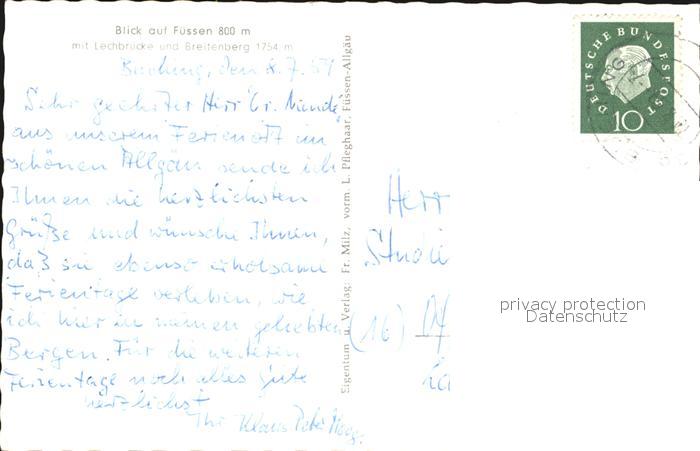 Blick auf Füssen 800 m
mit Lechbrücke und Breitenberg 1754 m
Buching, den 8.7.59
Sehr geehrter Herr Dr. Mende,
aus unserem Ferienort im
schönen Allgäu sende ich
Ihnen die herzlichsten
Grüße und wünsche Ihnen,
daß sie ebenso erholsame
Ferientage verleben, wie
ich hier in meinen geliebten
Bergen. Für die weiteren
Ferientage noch alles Gute
herzlichst
Ihr Klaus Peter
Eigentum u. Verlag: Fr. Milz, vorm. L. Pfleghaar, Füssen-Allgäu
DEUTSCHE BUNDESPOST
10
Herr
Studie
(16)
privacy protection
Datenschutz